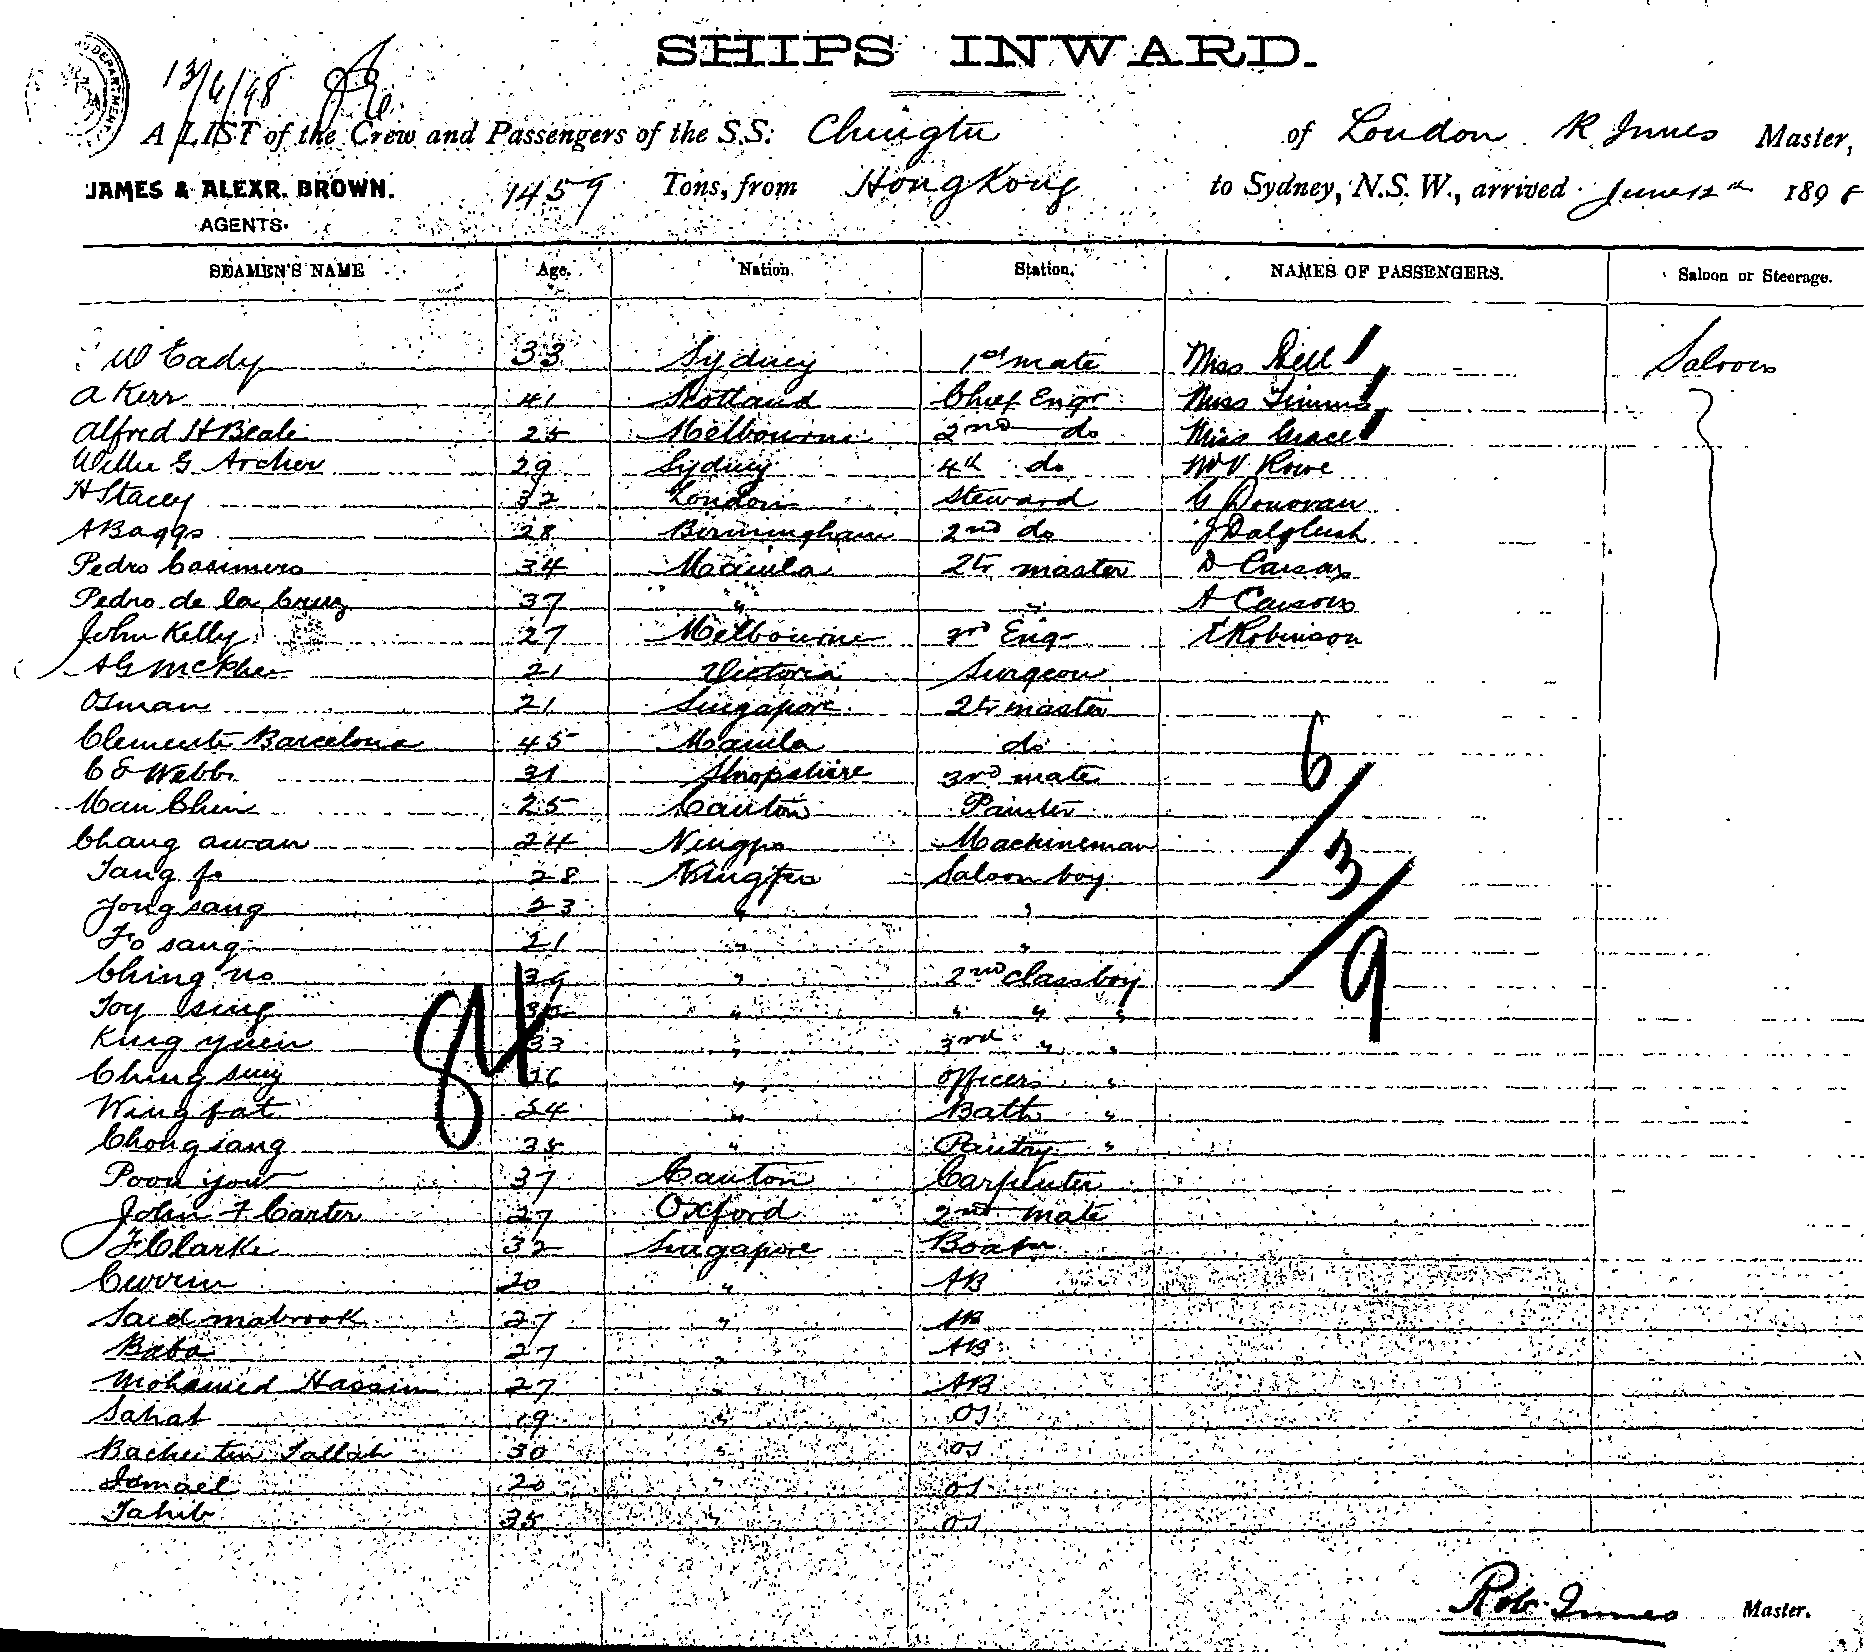 SHIPS INWARD.
13/6/98
DEPARTMENT
A LIST of the Crew and Passengers of the S.S: Chingtu of London R Innes Master,
JAMES & ALEXR. BROWN. 1459 Tons, from Hong Kong to Sydney, N.S.W., arrived June 12th 1898
AGENTS.
SEAMEN'S NAME Age. Nation. Station. NAMES OF PASSENGERS. Saloon or Steerage.
W Eady 33 Sydney 1st mate Miss Saloon
A Kerr 41 Scotland Chief Engr Miss Timms
Alfred H Beale 25 Melbourne 2nd do Miss Grace
Willie G Archer 29 Sydney 4th do Rowe
H Stacey 32 London Steward C Donovan
A Baggs 28 Birmingham 2nd do J Dalgleish
Pedro Casimero 34 Manila Qtr master D Carson
Pedro de la Cruz 37 " " A Carson
John Kelly 27 Melbourne 3rd Engr Robinson
A G 21 Victoria Surgeon
Osman 21 Singapore Qtr master
Clemente Barcelona 45 Manila do 6
C E Webb 31 Shropshire 3rd mate
Man Chin 25 Canton Painter
Chang awan 24 Ningpo Machineman 3
Tang fo 28 Ningpo Saloon boy
Yong sang 23 " "
Fo sang 21 " "
Ching no 39 " 2nd class boy 9
Toy sing " " " "
84
King yuen 33 " 3rd " "
Ching suy 26 " officers "
Wing fat 34 " Bath "
Chong sang 35 " Pantry "
Poon you 37 Canton Carpenter
John F Carter 27 Oxford 2nd mate
F Clark 32 Singapore Boatn
Currin 20 " AB
Said mabrook 27 " AB
Baba 27 " AB
Mohamed Hassim 27 " AB
Sahat 19 " OS
Sallah 30 " OS
Ismael 20 " OS
Tahib 35 " OS
Rob. Innes Master.